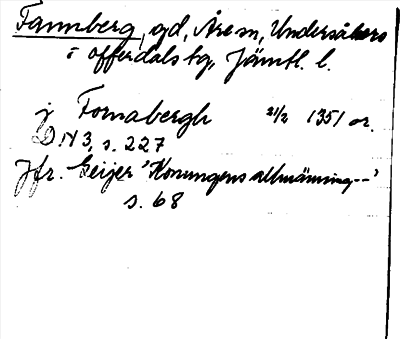 Tannberg, gd, Åre sn, Undersåkers
o offerdals tg, Jämtl. l.
j Fornabergh 21/2 1351 or.
DN 3, s. 227
Jfr. Geijer 'Konungens allmänning--'
s. 68